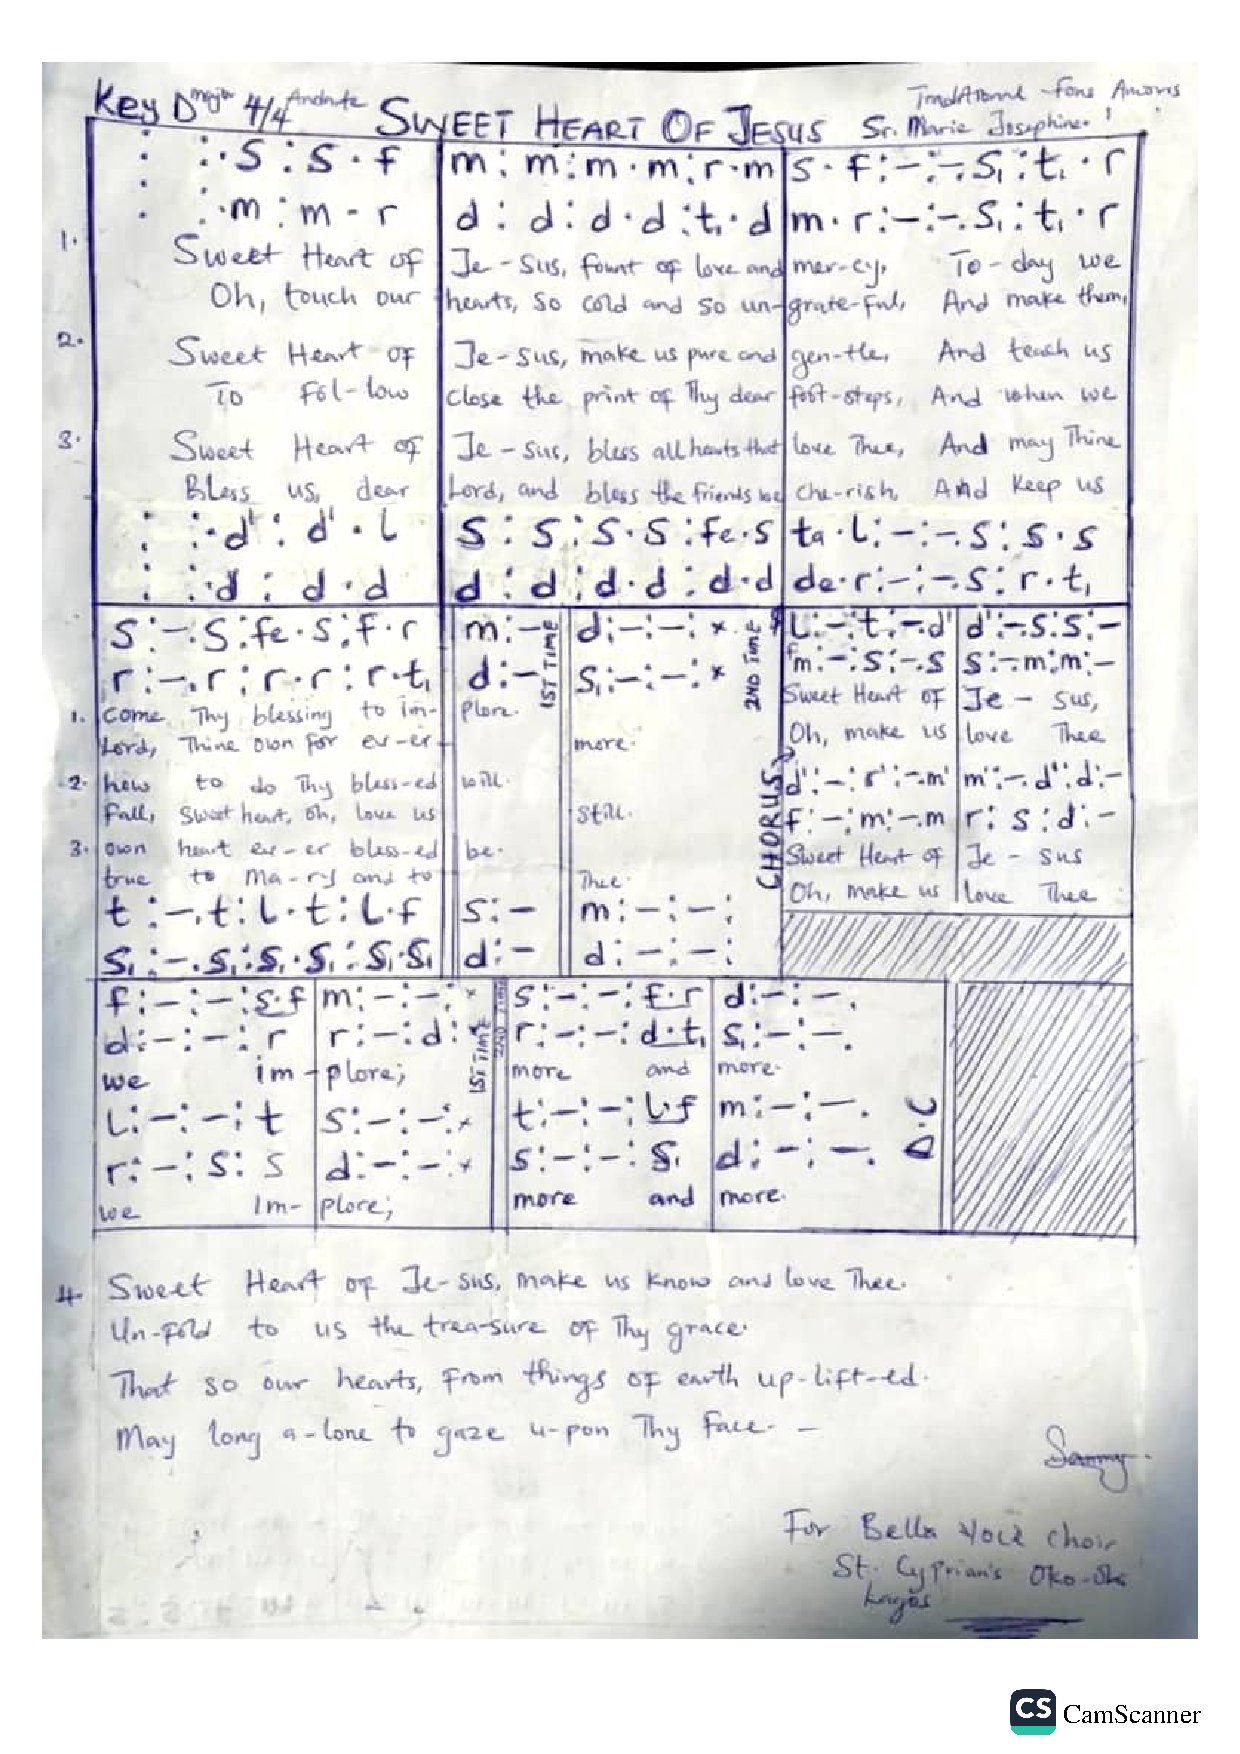 Key D major 4/4 Andante SWEET HEART OF JESUS Traditional - Fons Amoris
Sr. Marie Josephine.
: : . s : s . f | m : m : m . m : r . m | s . f : - : - . s₁ : t₁ . r
: : . m : m . r | d : d : d . d : t₁ . d | m . r : - : - . s₁ : t₁ . r
1. Sweet Heart of Je-sus, fount of love and mer-cy, To-day we
Oh, touch our hearts, so cold and so un-grate-ful, And make them,
2. Sweet Heart of Je-sus, make us pure and gen-tle, And teach us
To fol-low close the print of Thy dear foot-steps, And when we
3. Sweet Heart of Je-sus, bless all hearts that love Thee, And may Thine
Bless us, dear Lord, and bless the friends we che-rish, And keep us
: : . d' : d' . l | s : s : s . s : fe . s | ta . l : - : - . s : s . s
: : . d : d . d | d : d : d . d : d . d | de . r : - : - . s : r . t₁
s : - . s : fe . s : f . r | m : - 1ST TIME | d : - : - : × 2ND TIME | l : - : t : - . d' | d' : - . s : s : -
r : - . r : r . r : r . t₁ | d : - | s₁ : - : - : × | f m : - : s : - . s | s : - . m : m : -
1. come Thy blessing to im- plore. Sweet Heart of Je - sus,
Lord, Thine own for ev-er- more. Oh, make us love Thee
2. how to do Thy bless-ed will. CHORUS d' : - : r' : - . m' | m' : - . d' : d' : -
Fall, sweet heart, oh, love us still. f : - : m : - . m | r : s : d : -
3. own heart ev-er bless-ed be. Sweet Heart of Je - sus
true to Ma-ry and to Thee. Oh, make us love Thee
t : - . t : l . t : l . f | s : - | m : - : - :
s₁ : - . s₁ : s₁ . s₁ : s₁ . s₁ | d : - | d : - : - :
f : - : - : s . f | m : - : - : × 1ST TIME | 2ND TIME s : - : - : f . r | d : - : - .
d : - : - : r | r : - : d : × | r : - : - : d . t₁ | s₁ : - : - .
we im-plore; more and more.
l : - : - : t | s : - : - : × | t : - : - : l . f | m : - : - . D.C
r : - : s : s | d : - : - : × | s : - : - : s₁ | d : - : - .
we Im-plore; more and more.
4. Sweet Heart of Je-sus, make us know and love Thee.
Un-fold to us the trea-sure of Thy grace.
That so our hearts, from things of earth up-lift-ed.
May long a-lone to gaze u-pon Thy Face. -
Sammy.
For Bella voce choir
St. Cyprian's Oko-Oba
Lagos
CS CamScanner